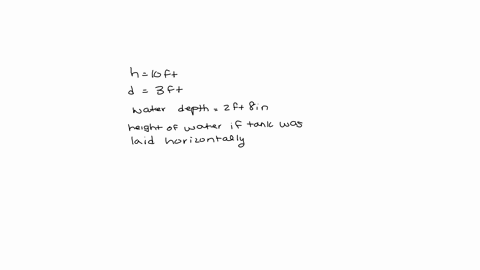 h = 10ft
d = 3ft
water depth = 2ft 8in
height of water if tank was
laid horizontally